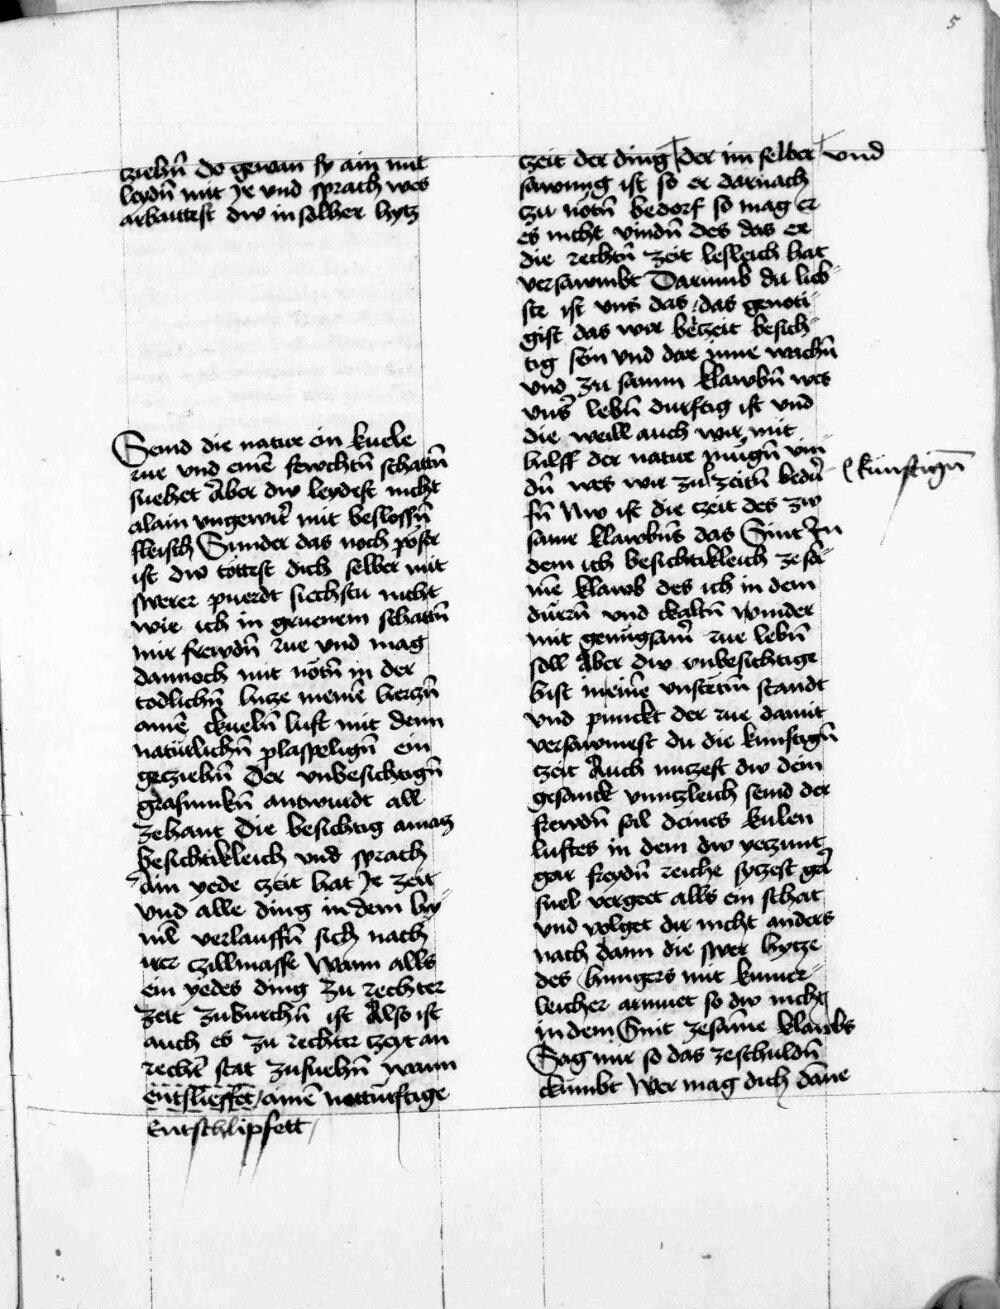 5
cziehn̄ do gewan sy ain mit
leydn̄ mit Ir vnd sprach wes
arbaittest dw in solher hytz
Seind die natur ein kuele
rue vnd einē fewchtn̄ schattn̄
suehet Aber dw leydest nicht
alain vngewit̄ mit beslossn̄
fleisch Sunder das noch poser
ist dw tottest dich selber mit
swerer puerdt siechstu nicht
wie ich in gruenem schattn̄
mir frewdn̄ rue vnd mag
dannoch mit nötn̄ in der
todlichn̄ hitze meinē herczn̄
ainē ckueln̄ luft mit dem
natürlichn̄ plaspelign̄ ein
geziehn̄ Der vnbesichtign̄
grasmukn̄ antwurdt all
zehant Die besichtig amaiz
besichtikleich vnd sprach
Ain yede czeit hat Ir zeit
vnd alle ding in dem hy-
mel verlauffn̄ sich nach
irer czillmasse Wann alls
ein yedes ding zu rechter
zeit zu surchn̄ ist Also ist
auch es zu rechter czeyt an
rechter stat zu suehn̄ wann
entslieffet / ainē notturftige
Entschlipfett /
czeit der ding der im selber vnd
sawmig ist so er darnach
zu nötn̄ bedorf so mag er
es nicht vindn̄ des das er
die rechtn̄ zeit lesleich hat
versawmbt Darumb du lieb-
ste ist vns das / das genoti-
gist das wir beczeit besich-
tig sein vnd dar inne wachn̄
vnd zu samm klawbn̄ wes
vns̄ lebn̄ durftig ist vnd
die weill auch wir mit
hilff der natur mügn̄ vin-
dn̄ wes wir zu zeitn̄ bedür-
künftign̄
fn̄ Nw ist die czeit des zw
same klawbn̄s das Snit In
dem ich besichtikleich ze sa-
me klawb des ich in dem
dürrn̄ vnd ckaltn̄ winder
mit genügsam̄ rue lebn̄
soll Aber dw vnbesichtige
bist in einē vnstetm̄ standt
vnd punckt der rue damit
versawmest du die kunftign̄
czeit Auch nuczest dw dein
gesanck vnnczleich seind der
frewdn̄ sal deines kulen
luftes in dem dw yeczunt
gar freydn̄ reiche syczest gar
snel verget alls ein schat
vnd volget dir nicht anders
nach dann die swer hytze
des hungers mit kumer-
leicher armuet so dw nicht
in dem Snit zesame klawbs
Sag mir so das ze schuldn̄
ckumbt Wer mag dich dane